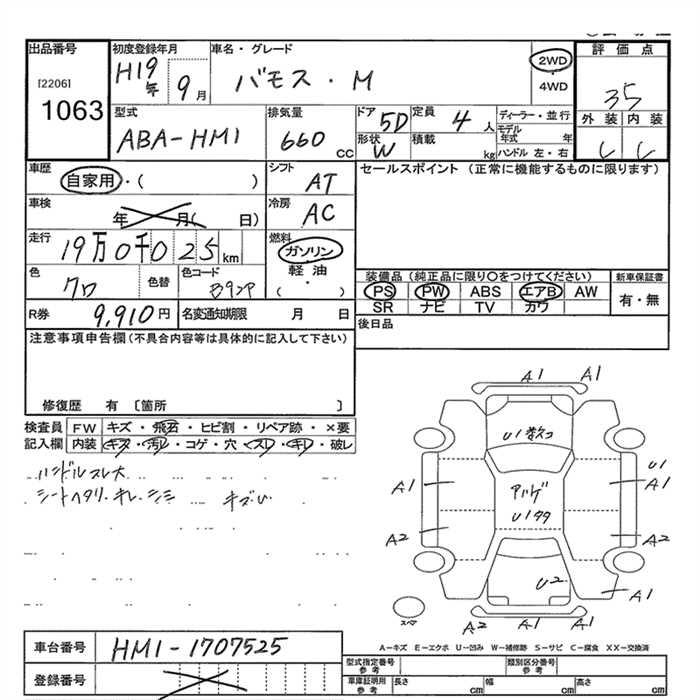 出品番号 初度登録年月 車名・グレード 評価点
[2206] H19年 9月 バモス・M 2WD ・4WD 35
1063 外装 内装
型式 排気量 ドア 定員 ディーラー・並行
ABA-HM1 660 CC 5D 4人 モデル年式 年
形状 W 積載 kg ハンドル 左・右
車歴 シフト セールスポイント (正常に機能するものに限ります)
自家用・( ) AT
車検 冷房
年 月( 日) AC
走行 燃料
19万0千025km ガソリン
色 色替 色コード 軽油 装備品(純正品に限り○をつけてください) 新車保証書
クロ B92P ・( ) PS PW ABS エアB AW 有・無
SR ナビ TV カワ
R券 9,910円 名変通知期限 月 日 後日品
注意事項申告欄(不具合内容等は具体的に記入して下さい)
修復歴 有 〔箇所 〕
検査員 FW キズ・飛石・ヒビ割・リペア跡・×要
記入欄 内装 キズ・汚レ・コゲ・穴・スレ・キレ・破レ
ハンドルスレ大
シートヘタリ・キレ・シミ キズU
A1 A1
U1
A1 A1
U1
A2 A2
U2
A1
A2 A1
スペア
A-キズ E-エクボ U-凹み W-補修跡 S-サビ C-腐食 XX-交換済
車台番号 HM1-1707525
型式指定番号 参考 類別区分番号 参考
登録番号 車庫証明用 参考 長さ cm 幅 cm 高さ cm